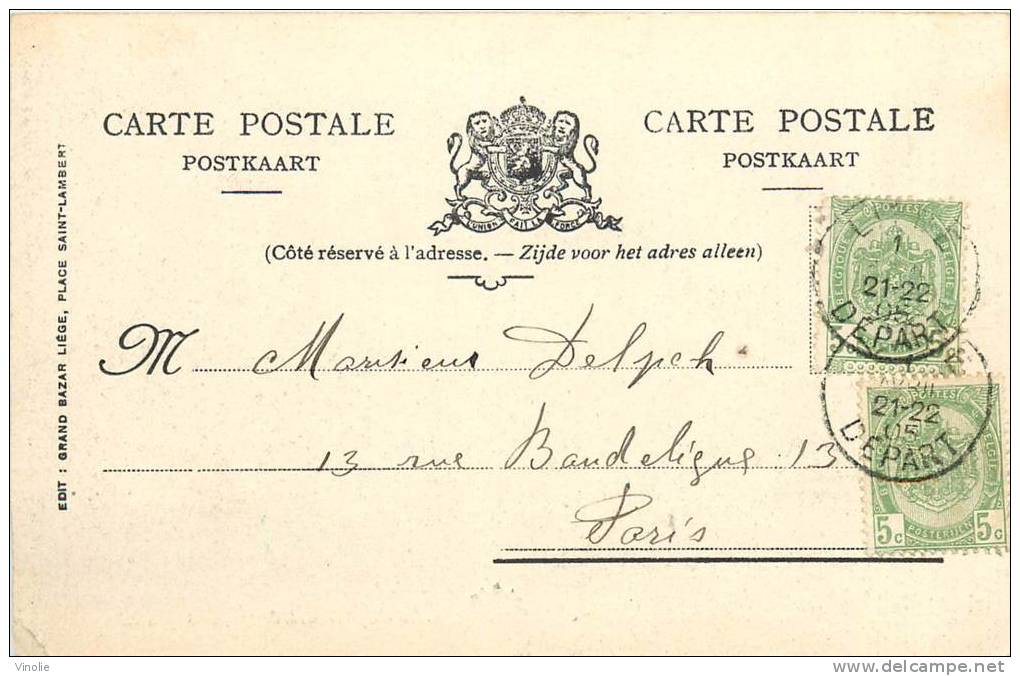 CARTE POSTALE
POSTKAART
CARTE POSTALE
POSTKAART
L'UNION FAIT LA FORCE
(Côté réservé à l'adresse. — Zijde voor het adres alleen)
EDIT : GRAND BAZAR LIÉGE, PLACE SAINT-LAMBERT
POSTES
BELGIQUE
BELGIE
1
21-22
05
DEPART
M Delpch
13 rue 13
Paris
POSTES
1
AVRIL
21-22
05
DEPART
5c POSTERIJEN 5c
Vinolie
http://www.delcampe.net